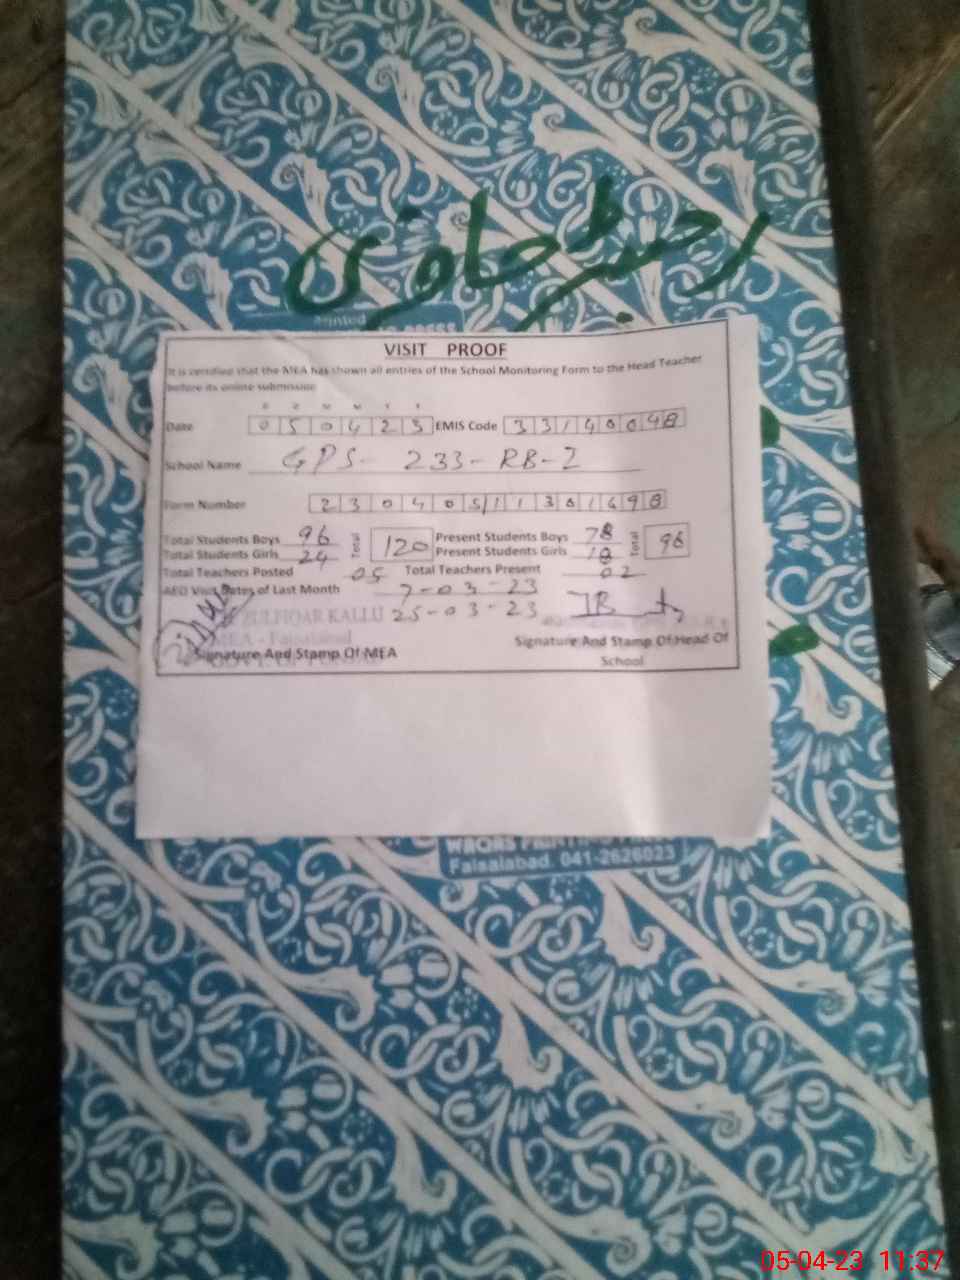 رجسٹر حاوی
Printed
VISIT PROOF
It is certified that the MEA has shown all entries of the School Monitoring Form to the Head Teacher
before its online submission
D D M M Y Y
Date 050423 EMIS Code 33140048
School Name GPS- 233-RB-I
Form Number
Total Students Boys 96 Total 120 Present Students Boys 78 Total 96
Total Students Girls 24 Present Students Girls 18
Total Teachers Posted 05 Total Teachers Present 02
AEO Visit Dates of Last Month 7-03-23
ZULFIQAR KALLU 25-03-23
MEA - Faisalabad
Signature And Stamp Of MEA Signature And Stamp Of Head Of
School
Faisalabad. 041-2626023
05-04-23 11:37